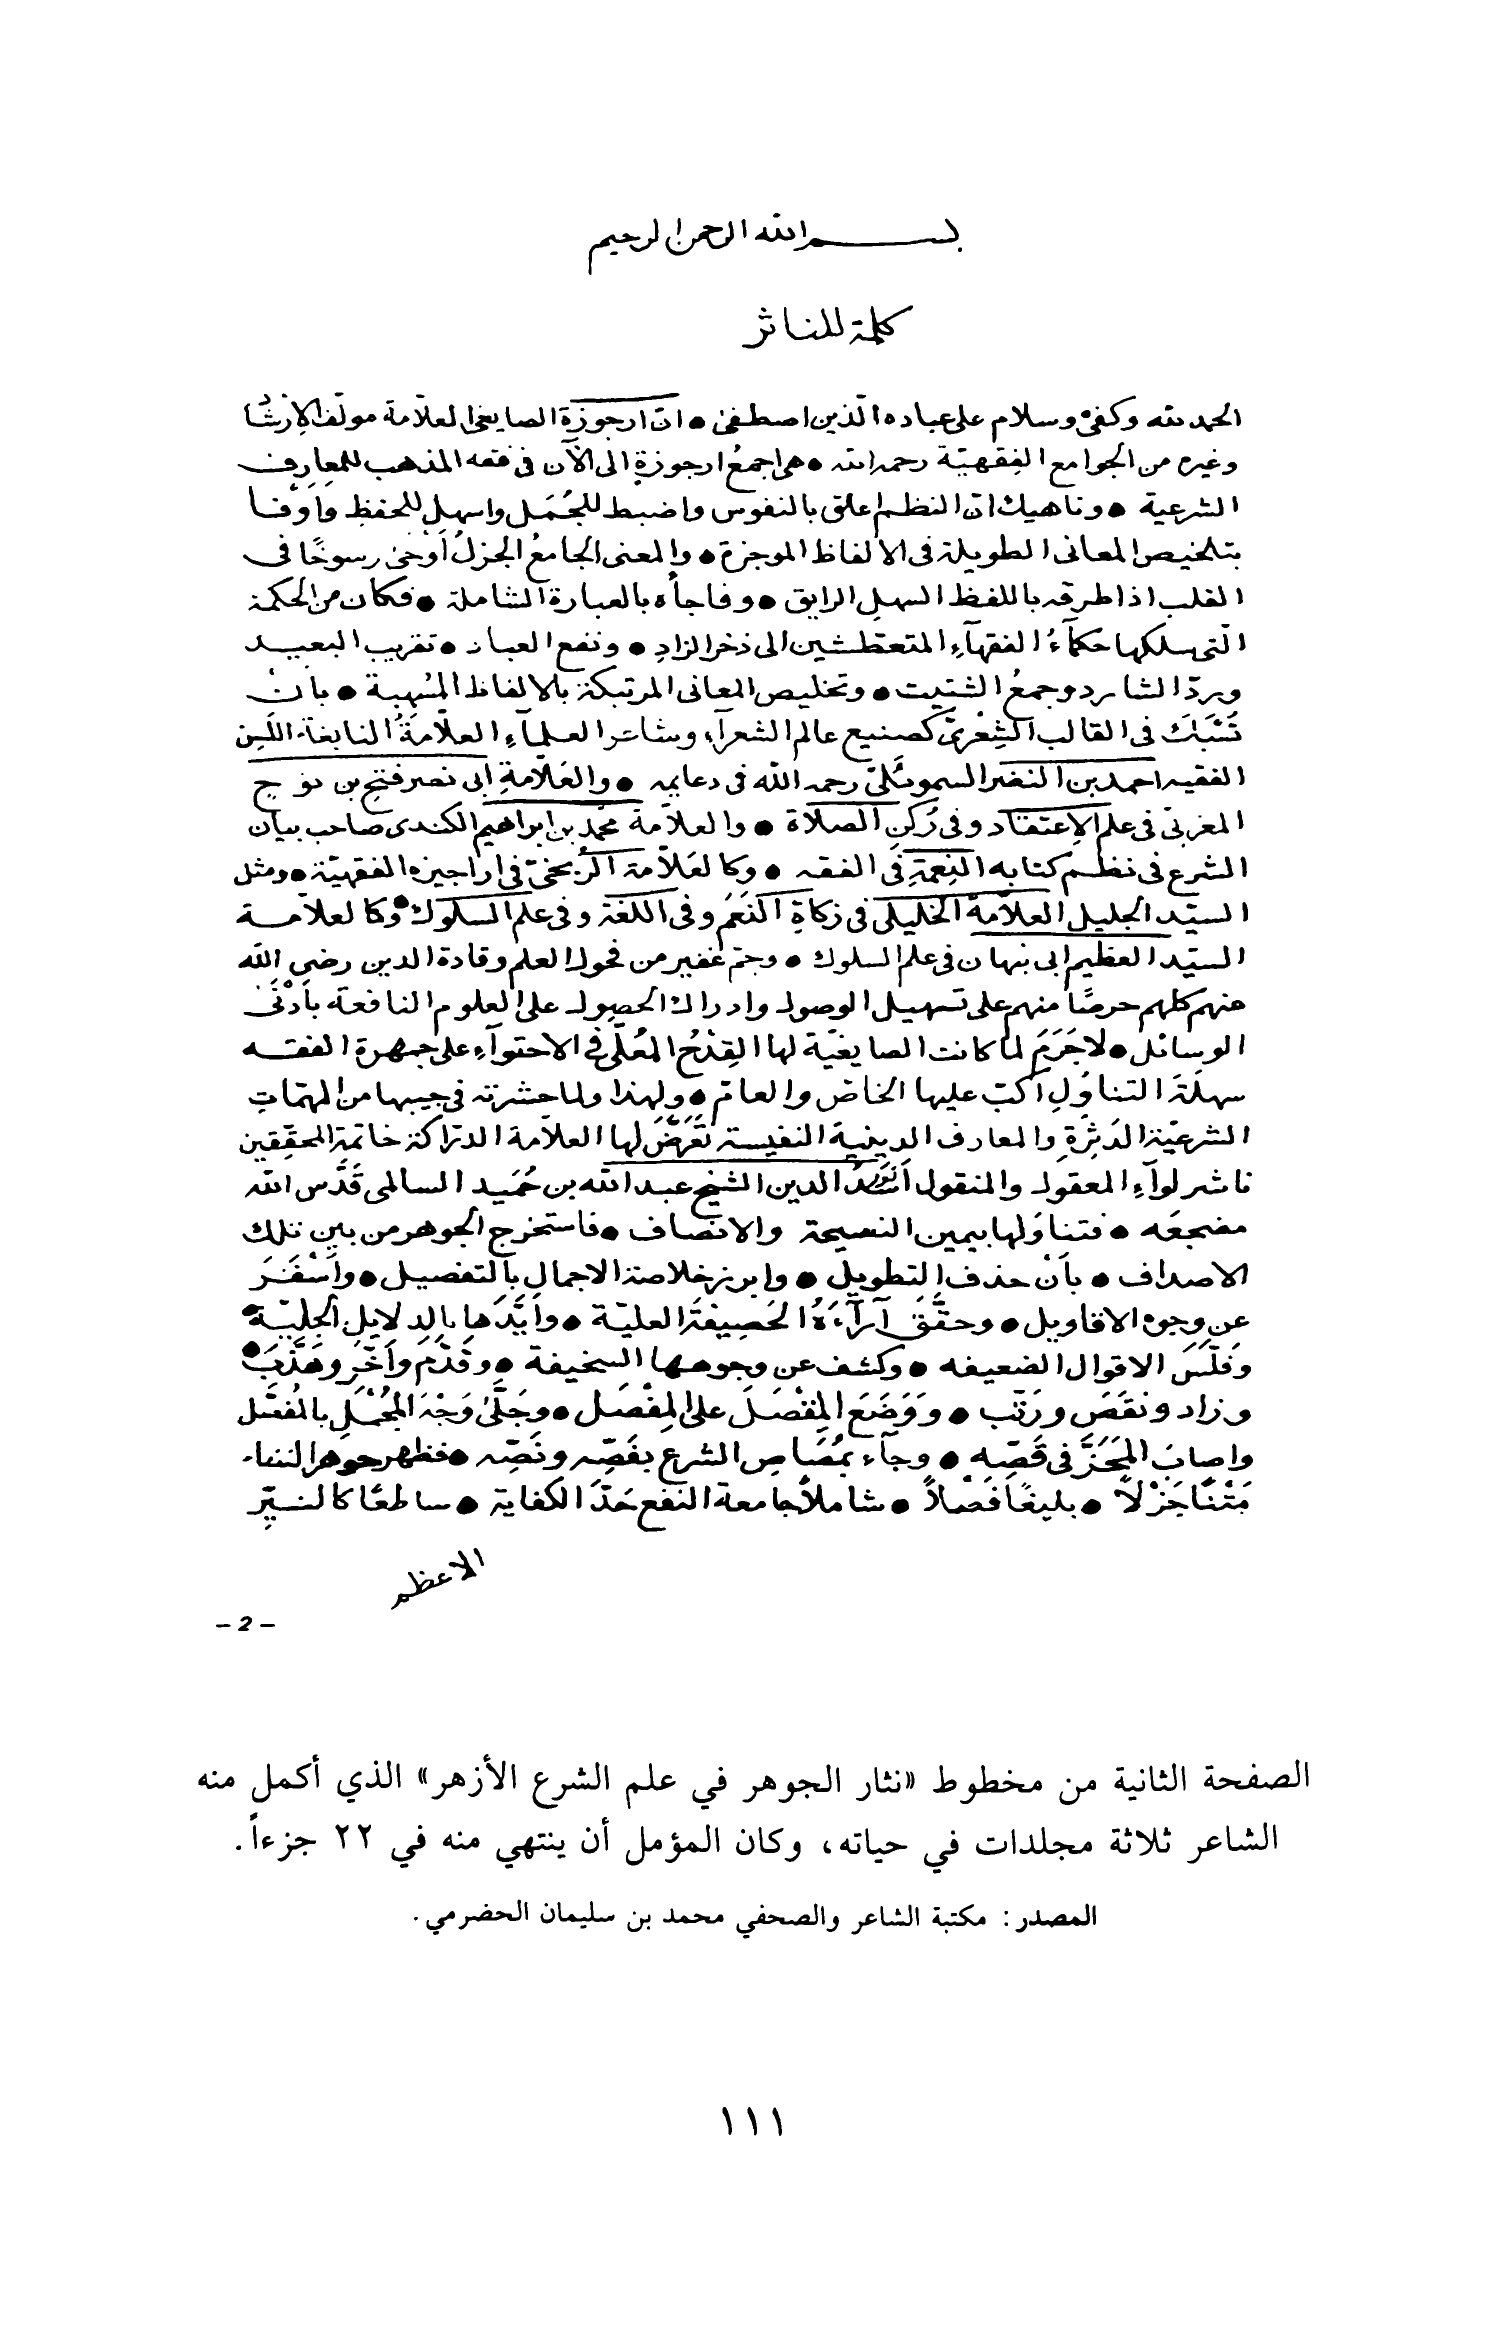 بسم الله الرحمن الرحيم
كلمة للناثر
الحمد لله وكفىٰ وسلام على عباده الّذين اصطفىٰ • انّ ارجوزة الصايغى العلّامة مولّف الإرشاد
وغيره من الجوامع الفقهيّة رحمه الله • هى اجمعُ ارجوزةٍ الى الآن فى فقه المذهب للمعارف
الشرعية • وناهيك انّ النظم اعلق بالنفوس واضبط للجُمَل واسهل للحفظ واوفا
بتلخيص المعانى الطويلة فى الالفاظ الموجزة • والمعنى الجامعُ الجزلُ أوخىٰ رسوخًا فى
القلب اذا طرقه باللفظ السهلِ الرايق • وفاجأه بالعبارة الشاملة • فكان من الحكمة
الّتى سلكها حكمآءُ الفقهآءِ المتعطّشين الى ذخر الزادِ • ونفع العباد • تقريب البعيد
وردّ الشارد وجمعُ الشتيت • وتخليص المعانى المرتبكة بالالفاظ المسهبة • بان
تَسْبَكَ فى القالب الشِعْرىّ كصنيع عالم الشعرآء وشاعر العلمآءِ العلّامةُ النابغة اللَّسِن
الفقيه احمد بن النضر السموئَلىّ رحمه الله فى دعايمه • والعَلّامةِ ابى نصر فتح بن نوح
المغربىّ فى علم الإعتقاد وفى رُكنِ الصلاة • والعلّامة محمّد بن ابراهيم الكندى صاحب بيان
الشرع فى نظم كتابه النِعمَةِ فى الفقه • وكالعَلّامة الربخىّ فى اراجيزه الفقهيّة • ومثل
السيّد الجليل العلّامة الخليلى فى زكاةِ النَعَم وفى اللغة وفى علم السلوك • وكالعلّامة
السيّد العظيم ابى نبهان فى علم السلوك • وجمّ غفير من فحول العلم وقادة الدين رضى الله
عنهم كلهم حرصًا منهم على تسهيل الوصول وادراك الحصول على العلوم النافعة بأدْنَى
الوسائل • لاجَرَمَ لما كانت الصايغيّة لها القِدْحُ المُعَلّى فى الاحتوآءِ على جمهرة الفقه
سهلَةَ التناوُلِ أكبّ عليها الخاصّ والعامّ • ولهذا ولما حشرته فى جيبها من المهمّاتِ
الشرعيّة الدَثِرَةِ والمعارف الدينية النفيسة تَعَرَّضَ لها العلّامة الدرّاكة خاتمة المحقّقين
ناشر لوآءِ المعقول والمنقول الدين الشيخ عبد الله بن حُمَيد السالمى قَدّس الله
مضجعَه • فتناوَلها بيمين النصيحة والانصاف • فاستخرج الجوهر من بين تلك
الاصداف • بأنْ حذف التطويل • وابرز خلاصة الاجمال بالتفصيل • وأسْفَرَ
عن وجوه الاقاويل • وحقّقَ آرآءَهُ الحَصِيفةَ العليّة • وأيَّدَها بالدلايل الجليّة •
وَفَلّسَ الاقوال الضعيفه • وكشف عن وجوهها السخيفة • وقدّمَ وأخّر وهَذّبَ •
وزاد ونقَصَ ورتّب • وَوَضَعَ المِفْصَلَ على المِفْصَل • وجَلَّىٰ وَجْهَ المُجْمَلِ بالمُفصَّل
واصابَ المَحَزَّ فى قَصِّه • وجآء بمُصَاصِ الشرع بفَصِّه ونَصِّه • فظهر جوهر النظام
مَتْنًا جَزْلاً • بليغًا فَصْلاً • شاملاً جامعة النفع حَدّ الكفاية • ساطعًا كالنيِّر
الاعظم
- 2 -
الصفحة الثانية من مخطوط «نثار الجوهر في علم الشرع الأزهر» الذي أكمل منه
الشاعر ثلاثة مجلدات في حياته، وكان المؤمل أن ينتهي منه في ٢٢ جزءاً.
المصدر: مكتبة الشاعر والصحفي محمد بن سليمان الحضرمي.
١١١